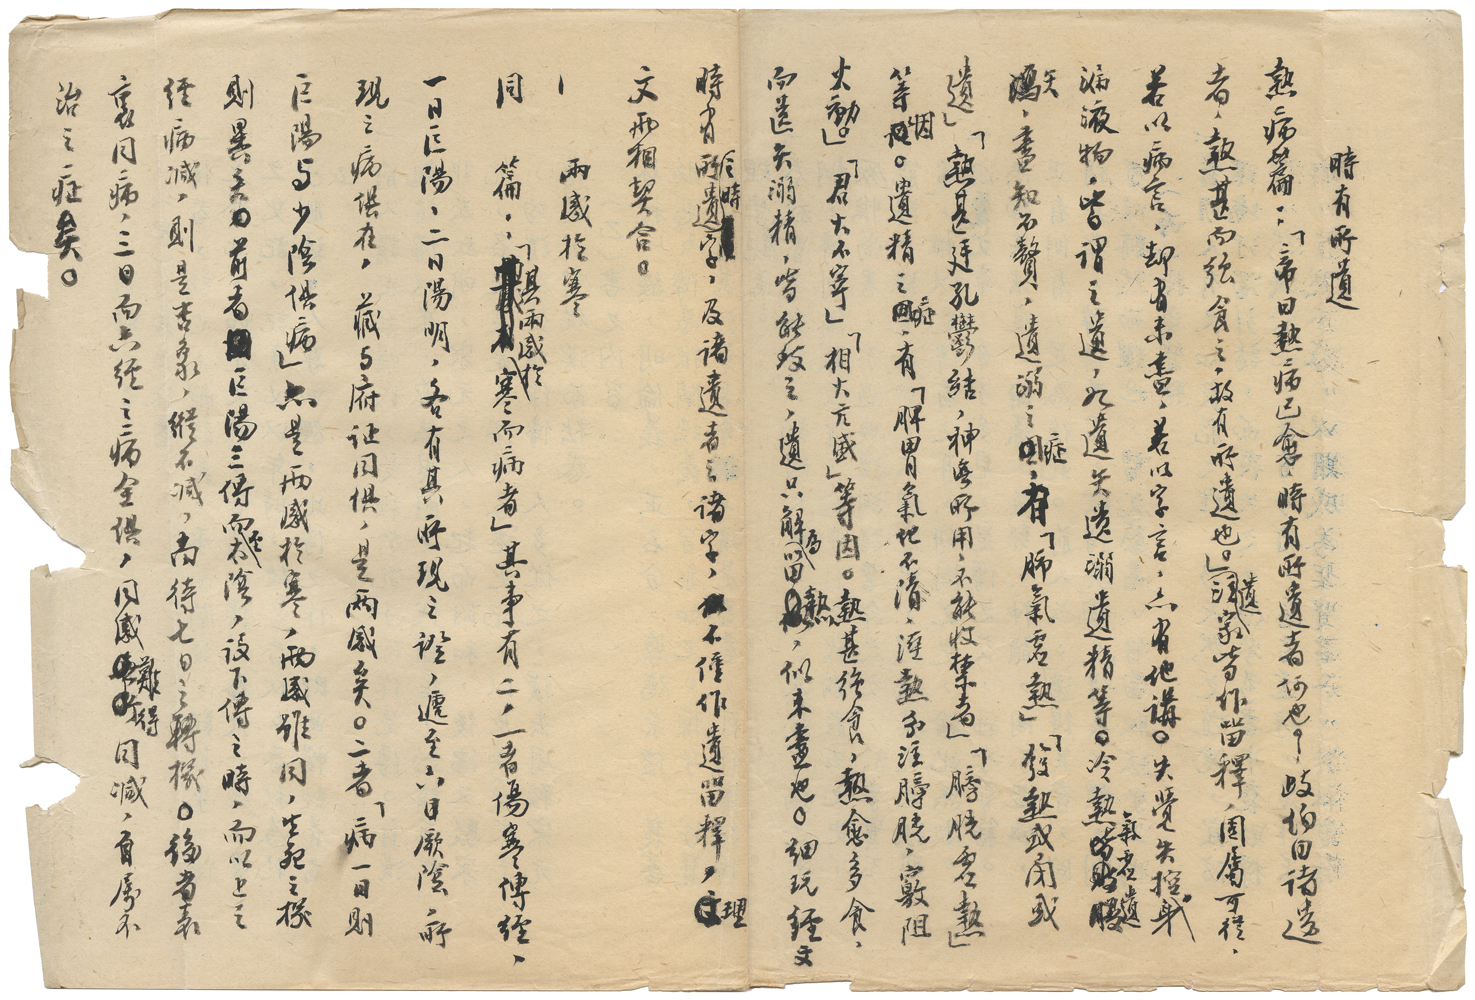 時有所遺
熱病篇，「帝曰熱病已愈，時有所遺者何也？歧伯曰諸遺
者，熱甚而強食之，故有所遺也。」註家皆作留釋，固屬可從，
若以病言，却有未盡，若以字言，亦有他講。失覺失控身
漏液物，皆謂之遺，凡遺矢遺溺遺精等。冷熱氣虛遺
矢，盡知不贅，遺溺之症，有「肺氣虛熱」「發熱或閉或
遺」「熱甚廷孔鬱結，神無所用，不能收禁者」「膀胱虛熱」
等因。遺精之症，有「脾胃氣地不清，濕熱分注膀胱，竅阻
火動」。「君火不寧」「相火亢盛」等因。熱甚強食，熱愈多食，
而遺矢溺精，皆能致之，遺只解為留熱，似未盡也。細玩經文
時有所遺字，及諸遺者之諸字，不僅作遺留釋，文理
文兩相契合。
| 兩感於寒
同 篇，「其兩感於寒而病者」其事有二，一者傷寒傳經，
一日巨陽，二日陽明，各有其所現之證，遞至六日厥陰所
現之病俱在，藏与府証同俱，是兩感矣。二者「病一日則
巨陽与少陰俱病」亦是兩感於寒，兩感雖同，生死之機
則異矣。前者巨陽三傳而太陰，設下傳之時，而以上之
經病減，則是吉象，縱不減，尚待七日之轉機。後者表
裏同病，三日而六經之病全俱，同感難得同減，自屬不
治之症矣。